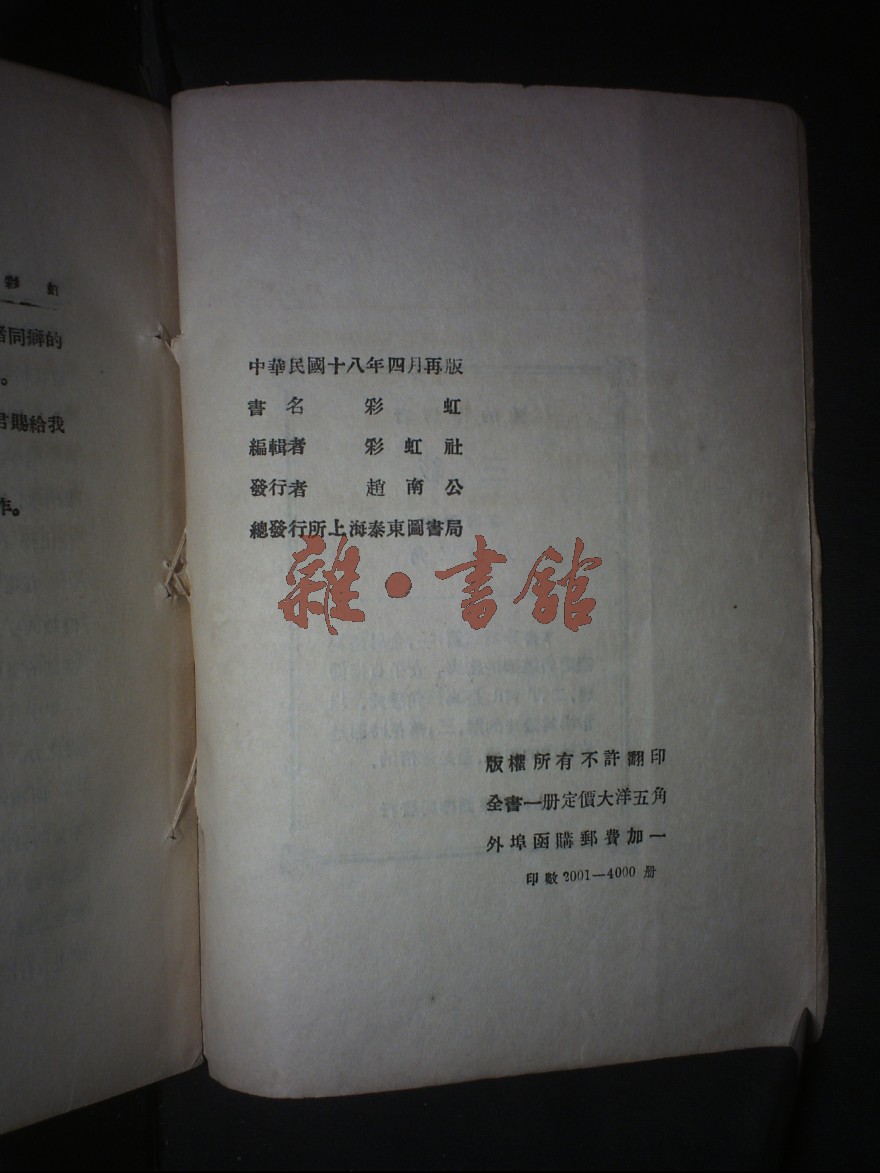 彩虹
同癖的
。
賜給我
作。
中華民國十八年四月再版
書名 彩虹
編輯者 彩虹社
發行者 趙南公
總發行所上海泰東圖書局
雜·書館
版權所有不許翻印
全書一册定價大洋五角
外埠函購郵費加一
印數2001—4000册